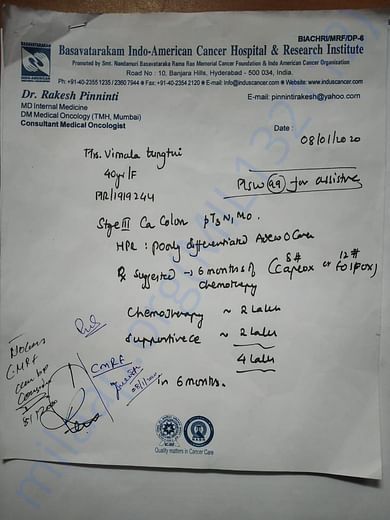 BIACHRI/MRF/DP-6
BASAVATARAKAM
INDO-AMERICAN
Basavatarakam Indo-American Cancer Hospital & Research Institute
Promoted by Smt. Nandamuri Basavataraka Rama Rao Memorial Cancer Foundation & Indo American Cancer Organisation
Road No : 10, Banjara Hills, Hyderabad - 500 034, India.
Ph: +91-40-2355 1235 / 2360 7944 Fax: +91-40-2354 2120 E-mail: info@induscancer.com Website: www.induscancer.com
Dr. Rakesh Pinninti
MD Internal Medicine
DM Medical Oncology (TMH, Mumbai)
Consultant Medical Oncologist
E-mail: pinnintirakesh@yahoo.com
Date : 08/01/2020
Mrs. Vimala tungtui
40yr/F
MR/1919244
for assistance
Stage III Ca Colon pT3 N1 M0.
HPR : poorly differentiated Adeno Ca
Rx suggested → 6 months of chemotherapy (8# Capeox or 12# Folfox)
Chemotherapy ~ 2 Lakhs
Supportive ~ 2 Lakhs
4 Lakhs
in 6 months.
CMRF
CMRF
08/1/2020
Quality matters in Cancer Care
milaap.org